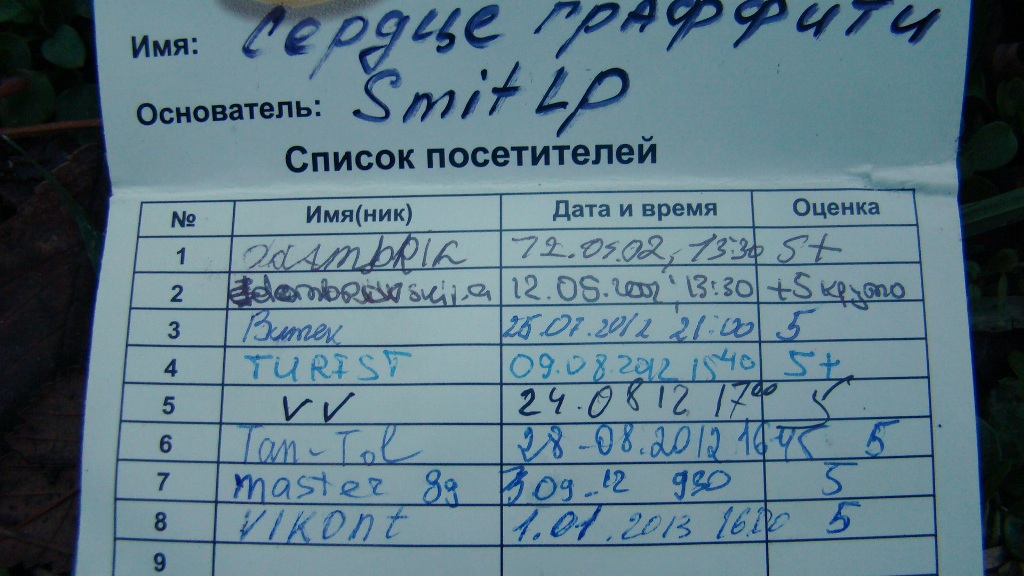 Имя: Сердце граффити
Основатель: Smit LP
Список посетителей
№ Имя(ник) Дата и время Оценка
1 13:30 5+
2 13:30 +5 круто
3 Витек 25.07.2012 21:00 5
4 TURIST 09.08.2012 15 40 5+
5 VV 24.08 12 17 00 5
6 Tan-Tol 28-08.2012 16 45 5
7 master 89 3 09-12 930 5
8 VIKONt 1.01.2013 16:00 5
9